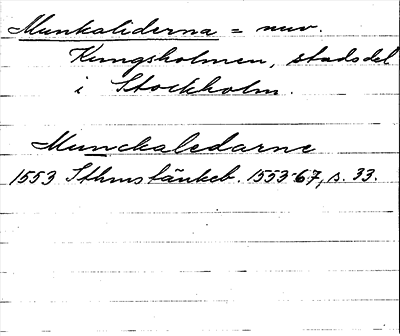 Munkaliderna = nuv.
Kungsholmen, stadsdel
i Stockholm.
Munckaledarne
1553 Sthms tänkeb. 1553-67, s. 33.